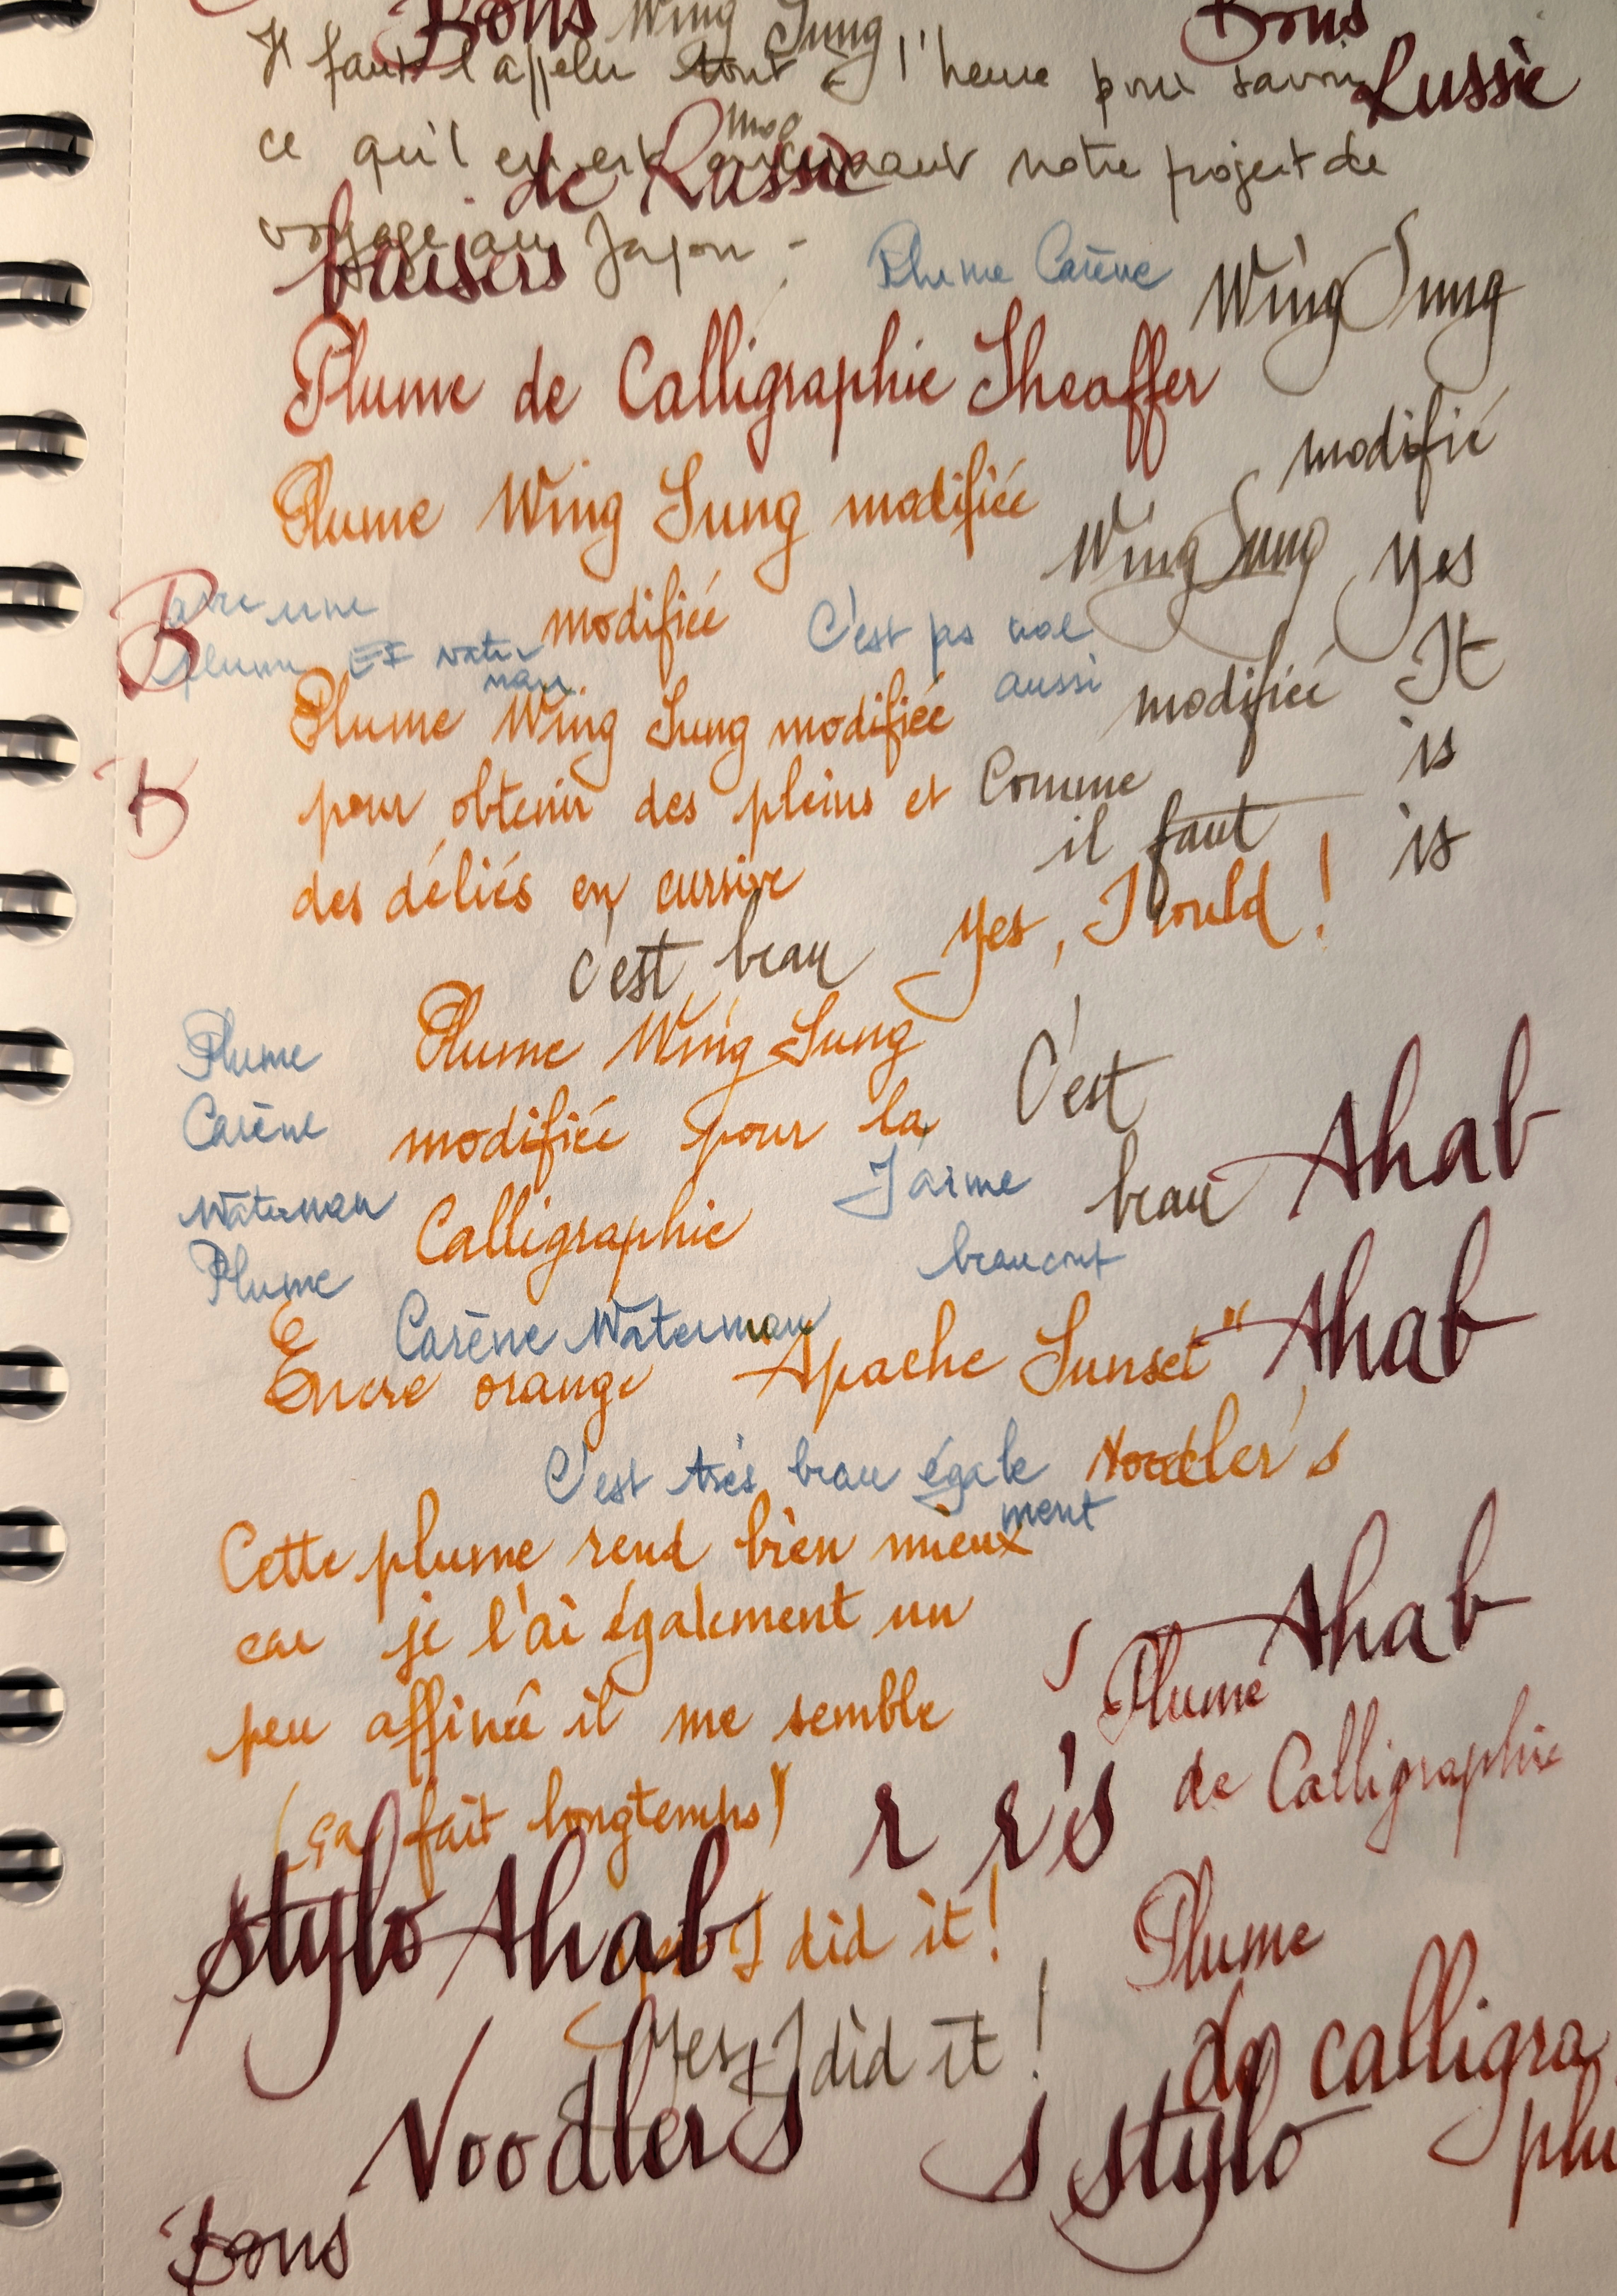 Bons Wing Sung Bons
Il faut l'appeler tout à l'heure pour savoir
Russie
ce qu'il en est notre project de
de Russie
voyage au Japon.
baisers
Plume Carène
Wing Sung
Plume de Calligraphie Sheaffer
modifié
Plume Wing Sung modifiée
Wing Sung Yes
B
une
modifiée
C'est pas mal
plume EF Water
man
aussi
modifiée It
Plume Wing Sung modifiée
is
B
pour obtenir des pleins et
Comme
il faut
is
des déliés en cursive
Yes, I could !
c'est beau
Plume Wing Sung
Plume
Carène
modifiée pour la
C'est
beau
Ahab
J'aime
Waterman
Calligraphie
beaucoup
Plume
Carène Waterman
Encre orange Apache Sunset"
Ahab
Noodler's
C'est très beau égale
ment
Cette plume rend bien mieux
car je l'ai également un
Ahab
peu affinée il me semble
Plume
de Calligraphie
(ça fait longtemps)
r r's
stylo Ahab
I did it !
Plume
Yes, I did it !
de calligra
phi
Noodler's
s stylo
Bons